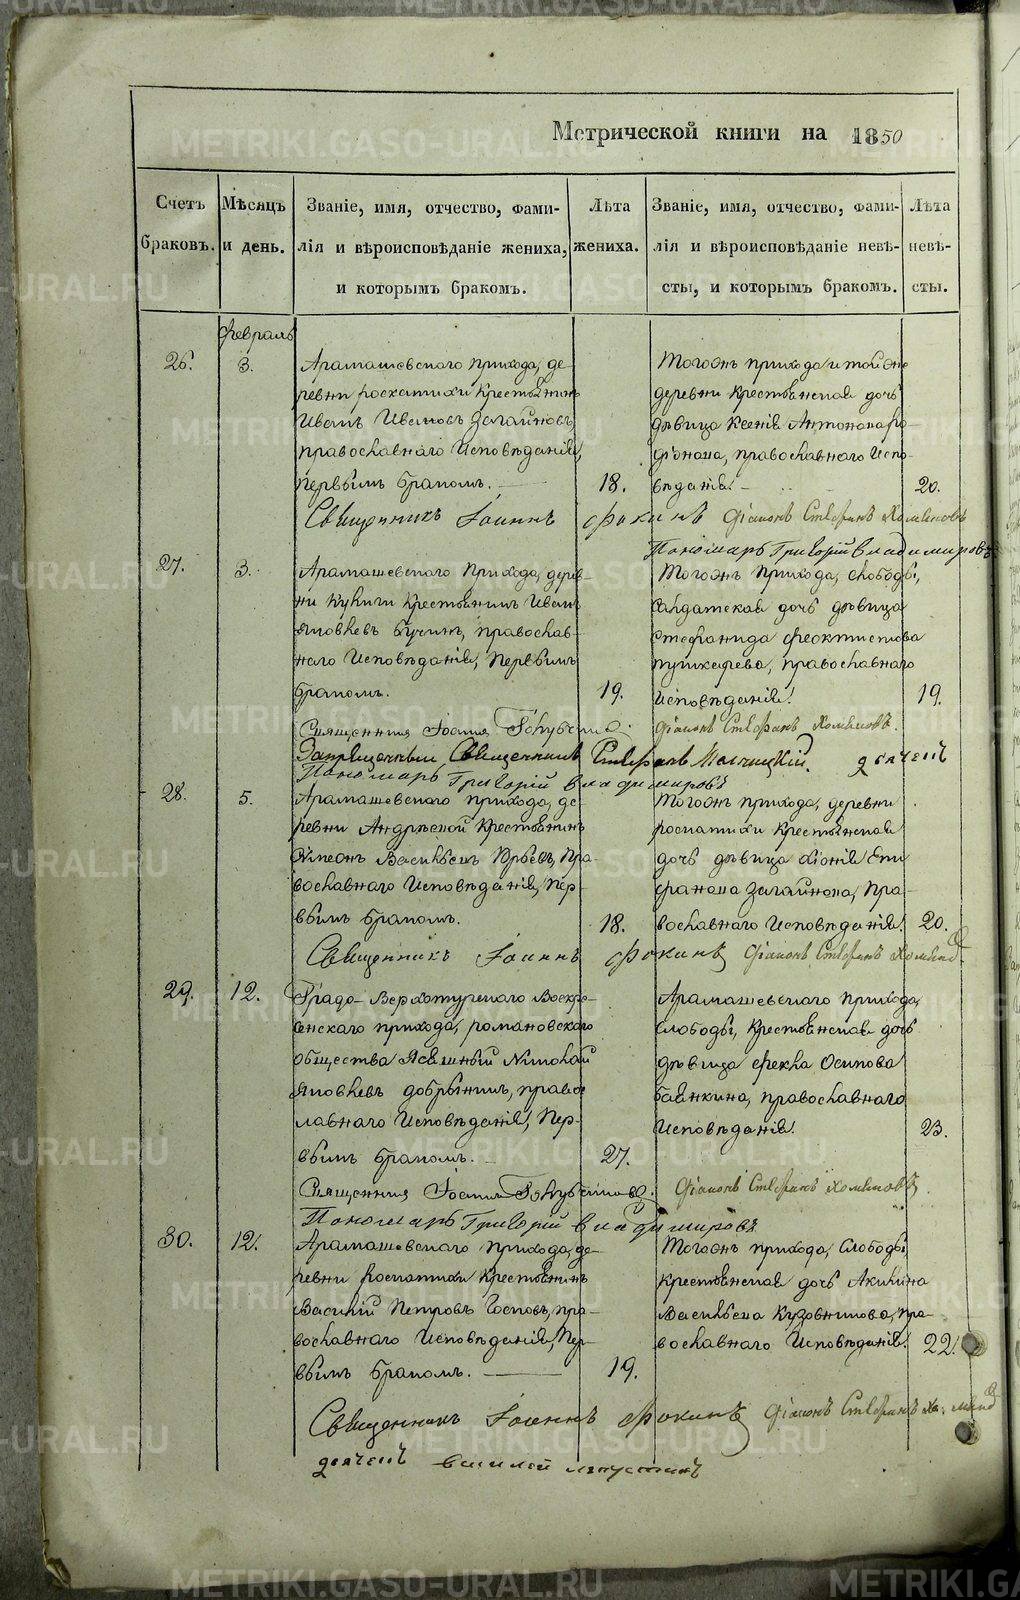 Метрической книги на 1850
Счетъ браковъ.
Мѣсяцъ и день.
Званіе, имя, отчество, фами-
лія и вѣроисповѣданіе жениха,
и которымъ бракомъ.
Лѣта жениха.
Званіе, имя, отчество, фами-
лія и вѣроисповѣданіе невѣ-
сты, и которымъ бракомъ.
Лѣта невѣ-
сты.
Февраль
26.
3.
Арамашевскаго прихода, де-
ревни Роскатихи крестьянинъ
Иванъ Ивановъ Загайновъ,
православнаго исповѣданія,
первымъ бракомъ.
18.
Тогожъ прихода и той же
деревни крестьянская дочь
дѣвица Ксенія Антонова
православнаго испо-
вѣданія.
20.
Священникъ Іоаннъ Фокинъ Діаконъ Стефанъ Хомяковъ
Пономарь Григорій Владимировъ
27.
3.
Арамашевскаго прихода, дерев-
ни крестьянинъ Иванъ
Яковлевъ православ-
наго исповѣданія, первымъ
бракомъ.
19.
Тогожъ прихода, слободы,
солдатская дочь дѣвица
Стефанида Феоктистова
православнаго
исповѣданія.
19.
Священник Іоанн Діаконъ Стефанъ Хомяковъ.
Запрещенный Священникъ Стефанъ дьячекъ
Пономарь Григорій Владимировъ
28.
5.
Арамашевскаго прихода, де-
ревни крестьянинъ
Симеонъ Васильевъ Юрьевъ, пра-
вославнаго исповѣданія, пер-
вымъ бракомъ.
18.
Тогожъ прихода, деревни
Роскатихи крестьянская
дочь дѣвица Хіонія Епи-
фанова Загайнова, пра-
вославнаго исповѣданія.
20.
Священникъ Іоаннъ Фокинъ Діаконъ Стефанъ Хомяковъ
29.
12.
Градо-Верхотурскаго Воскре-
сенскаго прихода, Романовскаго
общества ясашный Николай
Яковлевъ Добрынинъ, правос-
лавнаго исповѣданія, пер-
вымъ бракомъ.
27.
Арамашевскаго прихода,
слободы, крестьянская дочь
дѣвица Фекла Осипова
православнаго
исповѣданія.
23.
Священник Іоанн Діаконъ Стефанъ Хомяковъ
Пономарь Григорій Владимировъ
30.
12.
Арамашевскаго прихода, де-
ревни Роскатихи крестьянинъ
Василій Петровъ пра-
вославнаго исповѣданія, пер-
вымъ бракомъ.
19.
Тогожъ прихода, слободы,
крестьянская дочь Акилина
Васильева Кузовникова, пра-
вославнаго исповѣданія.
22.
Священникъ Іоаннъ Фокинъ Діаконъ Стефанъ Хомяковъ
дьячекъ Василей
METRIKI.GASO-URAL.RU